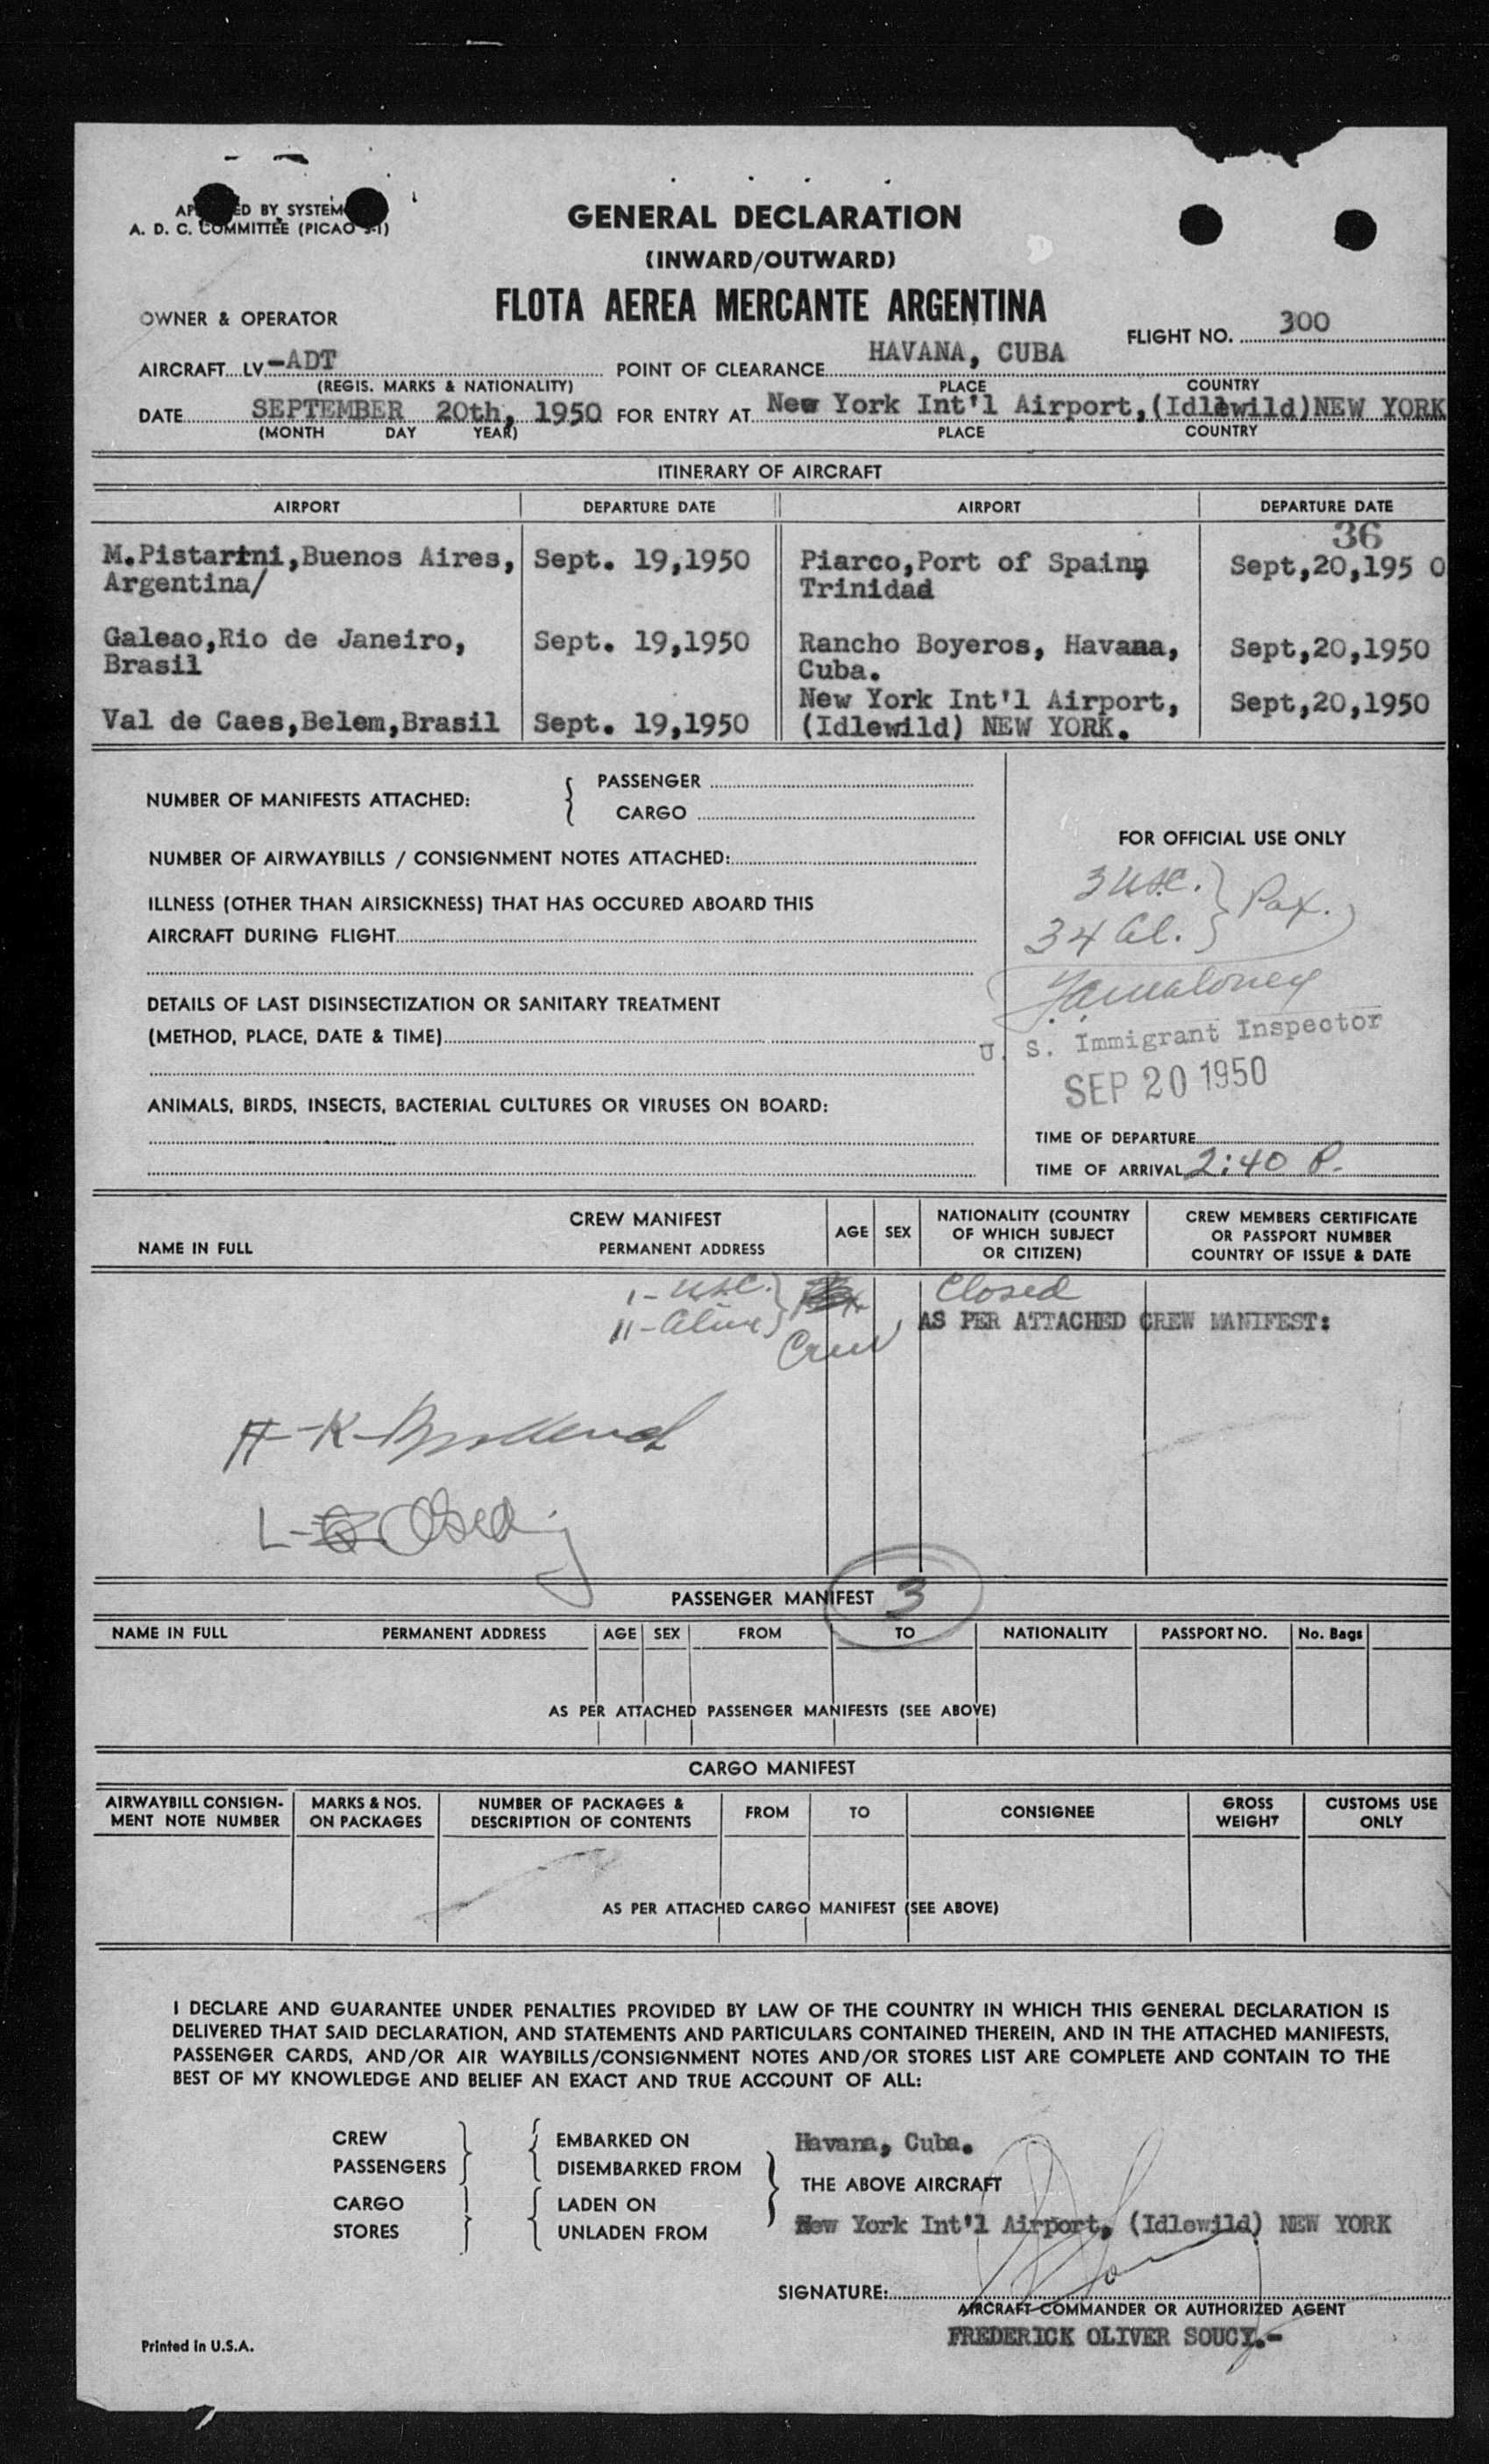 GENERAL DECLARATION
ED BY SYSTEM
A. D. C. COMMITTEE (PICAO
(INWARD/OUTWARD)
FLOTA AEREA MERCANTE ARGENTINA
OWNER & OPERATOR
FLIGHT NO. 300
AIRCRAFT LV-ADT POINT OF CLEARANCE HAVANA, CUBA
(REGIS. MARKS & NATIONALITY) PLACE COUNTRY
DATE SEPTEMBER 20th, 1950 FOR ENTRY AT New York Int'l Airport,(Idlewild)NEW YORK
(MONTH DAY YEAR) PLACE COUNTRY
ITINERARY OF AIRCRAFT
AIRPORT DEPARTURE DATE AIRPORT DEPARTURE DATE
36
M.Pistarini,Buenos Aires, Sept. 19,1950 Piarco,Port of Spain, Sept,20,195 0
Argentina/ Trinidad
Galeao,Rio de Janeiro, Sept. 19,1950 Rancho Boyeros, Havana, Sept,20,1950
Brasil Cuba.
New York Int'l Airport, Sept,20,1950
Val de Caes,Belem,Brasil Sept. 19,1950 (Idlewild) NEW YORK.
NUMBER OF MANIFESTS ATTACHED: { PASSENGER
CARGO
FOR OFFICIAL USE ONLY
NUMBER OF AIRWAYBILLS / CONSIGNMENT NOTES ATTACHED:
3 USC. } Pax.
34 Al.
ILLNESS (OTHER THAN AIRSICKNESS) THAT HAS OCCURED ABOARD THIS
AIRCRAFT DURING FLIGHT
DETAILS OF LAST DISINSECTIZATION OR SANITARY TREATMENT
(METHOD, PLACE, DATE & TIME)
U. S. Immigrant Inspector
SEP 20 1950
ANIMALS, BIRDS, INSECTS, BACTERIAL CULTURES OR VIRUSES ON BOARD:
TIME OF DEPARTURE
TIME OF ARRIVAL 2:40 P.
CREW MANIFEST
NAME IN FULL PERMANENT ADDRESS AGE SEX NATIONALITY (COUNTRY OF WHICH SUBJECT OR CITIZEN) CREW MEMBERS CERTIFICATE OR PASSPORT NUMBER COUNTRY OF ISSUE & DATE
1- USC. Closed
11- Alien }
Crew
AS PER ATTACHED CREW MANIFEST:
H-K-
L-
PASSENGER MANIFEST 3
NAME IN FULL PERMANENT ADDRESS AGE SEX FROM TO NATIONALITY PASSPORT NO. No. Bags
AS PER ATTACHED PASSENGER MANIFESTS (SEE ABOVE)
CARGO MANIFEST
AIRWAYBILL CONSIGN- MENT NOTE NUMBER MARKS & NOS. ON PACKAGES NUMBER OF PACKAGES & DESCRIPTION OF CONTENTS FROM TO CONSIGNEE GROSS WEIGHT CUSTOMS USE ONLY
AS PER ATTACHED CARGO MANIFEST (SEE ABOVE)
I DECLARE AND GUARANTEE UNDER PENALTIES PROVIDED BY LAW OF THE COUNTRY IN WHICH THIS GENERAL DECLARATION IS
DELIVERED THAT SAID DECLARATION, AND STATEMENTS AND PARTICULARS CONTAINED THEREIN, AND IN THE ATTACHED MANIFESTS,
PASSENGER CARDS, AND/OR AIR WAYBILLS/CONSIGNMENT NOTES AND/OR STORES LIST ARE COMPLETE AND CONTAIN TO THE
BEST OF MY KNOWLEDGE AND BELIEF AN EXACT AND TRUE ACCOUNT OF ALL:
CREW EMBARKED ON Havana, Cuba.
PASSENGERS DISEMBARKED FROM
THE ABOVE AIRCRAFT
CARGO LADEN ON
STORES UNLADEN FROM New York Int'l Airport, (Idlewild) NEW YORK
SIGNATURE:
AIRCRAFT COMMANDER OR AUTHORIZED AGENT
FREDERICK OLIVER SOUCY.-
Printed in U.S.A.